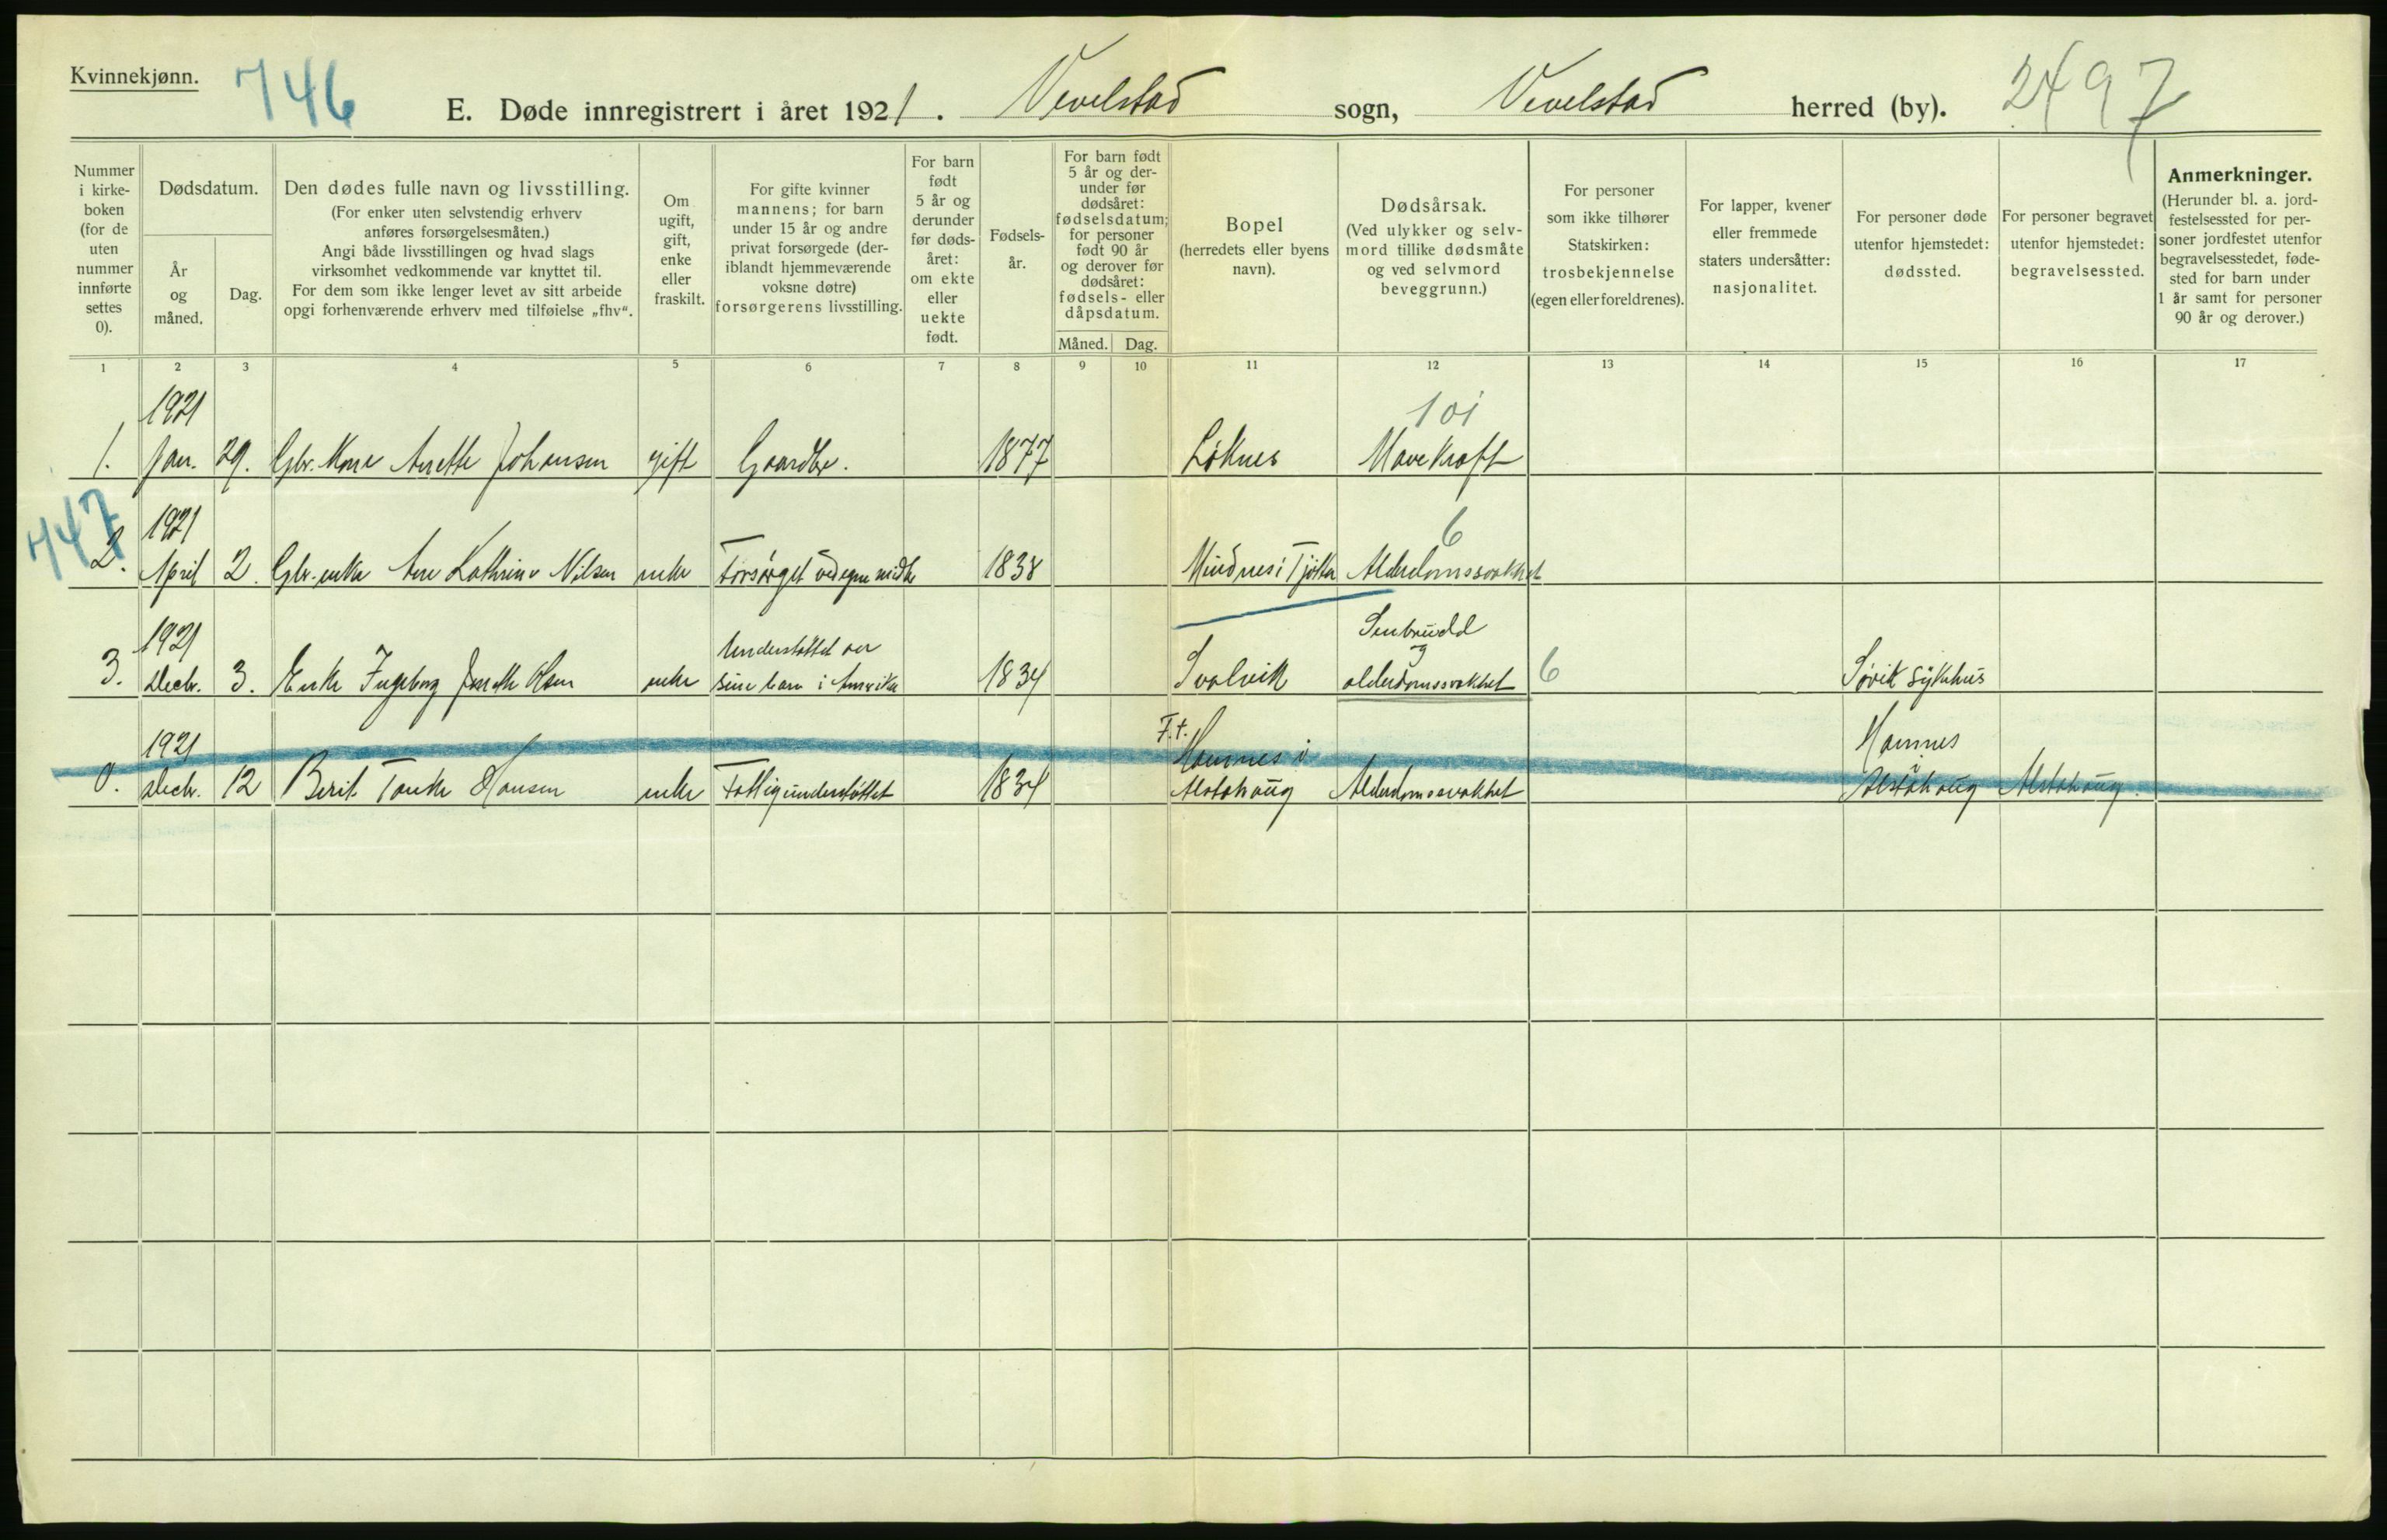 Kvinnekjønn.
746
E. Døde innregistrert i året 1921. Vevelstad sogn, Vevelstad herred (by).
2497
Nummer i kirke- boken (for de uten nummer innførte settes 0).
Dødsdatum.
År og måned.
Dag.
Den dødes fulle navn og livsstilling.
(For enker uten selvstendig erhverv
anføres forsørgelsesmåten.)
Angi både livsstillingen og hvad slags
virksomhet vedkommende var knyttet til.
For dem som ikke lenger levet av sitt arbeide
opgi forhenværende erhverv med tilføielse „fhv“.
Om ugift, gift, enke eller fraskilt.
For gifte kvinner
mannens; for barn
under 15 år og andre
privat forsørgede (der-
iblandt hjemmeværende
voksne døtre)
forsørgerens livsstilling.
For barn født 5 år og derunder før døds- året: om ekte eller uekte født.
Fødsels- år.
For barn født
5 år og der-
under før
dødsåret:
fødselsdatum;
for personer
født 90 år
og derover før
dødsåret:
fødsels- eller
dåpsdatum.
Måned. Dag.
Bopel
(herredets eller byens
navn).
Dødsårsak.
(Ved ulykker og selv-
mord tillike dødsmåte
og ved selvmord
beveggrunn.)
For personer
som ikke tilhører
Statskirken:
trosbekjennelse
(egen eller foreldrenes).
For lapper, kvener
eller fremmede
staters undersåtter:
nasjonalitet.
For personer døde
utenfor hjemstedet:
dødssted.
For personer begravet
utenfor hjemstedet:
begravelsessted.
Anmerkninger.
(Herunder bl. a. jord-
festelsessted for per-
soner jordfestet utenfor
begravelsesstedet, føde-
sted for barn under
1 år samt for personer
90 år og derover.)
1 2 3 4 5 6 7 8 9 10 11 12 13 14 15 16 17
1921 101
1. Jan. 29. Gbr. Kone Anette Johansen gift Gaardbr. 1877 Løknes Mavekræft
747
1921 6
2. April 2. Gbr. enke Ane Kathrine Nilsen enke Forsørget ved egne midler 1838 Mindnes i Tjøtta Alderdomssvakhet
1921 Understøttet av Benbrudd og
3. Decbr. 3. Enke Ingeborg Olsen enke sine barn i Amerika 1834 Svalvik alderdomssvakhet 6 Søvik sykehus
1921 F.t. Hamnes i Hamnes i
0. Decbr. 12 Berit Hansen enke Fattigunderstøttet 1834 Alstahaug Alderdomssvakhet Alstahaug Alstahaug.